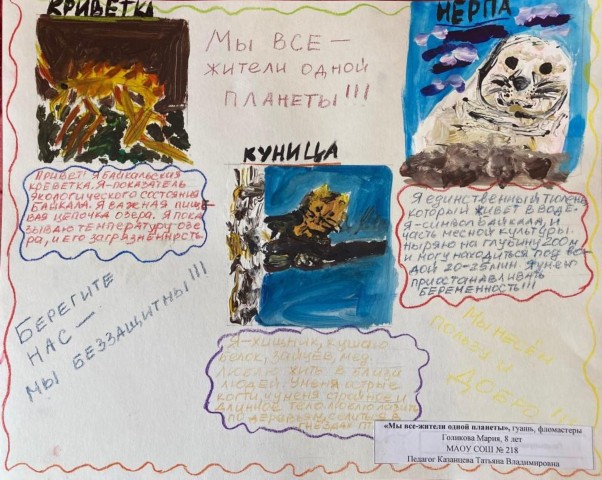 КРИВЕТКА
МЫ ВСЕ –
ЖИТЕЛИ ОДНОЙ
ПЛАНЕТЫ!!!
НЕРПА
КУНИЦА
ПРИВЕТ! Я БАЙКАЛЬСКАЯ
КРЕВЕТКА. Я-ПОКАЗАТЕЛЬ
ЭКОЛОГИЧЕСКОГО СОСТОЯНИЯ
БАЙКАЛА. Я ВАЖНАЯ ПИЩЕ
ВАЯ ЦЕПОЧКА ОЗЕРА. Я ПОКА
ЗЫВАЮ ТЕМПЕРАТУРУ ОЗЕ
РА, И ЕГО ЗАГРЯЗНЁННОСТЬ
Я ЕДИНСТВЕННЫЙ ТЮЛЕНЬ,
КОТОРЫЙ ЖИВЕТ В ВОДЕ.
Я-СИМВОЛ БАЙКАЛА, И
ЧАСТЬ МЕСНОЙ КУЛЬТУРЫ.
НЫРЯЮ НА ГЛУБИНУ 200М
И МОГУ НАХОДИТЬСЯ ПОД ВО
ДОЙ 20-25МИН. Я УМЕЮ
ПРИОСТАНАВЛИВАТЬ
БЕРЕМЕННОСТЬ!!!
БЕРЕГИТЕ
НАС –
МЫ БЕЗЗАЩИТНЫ!!!
Я-ХИЩНИК, КУШАЮ
БЕЛОК, ЗАЙЦЕВ, МЁД.
ЛЮБЛЮ ЖИТЬ В БЛИЗИ
ЛЮДЕЙ. У МЕНЯ ОСТРЫЕ
КОГТИ, У МЕНЯ СТРОЙНОЕ И
ДЛИННОЕ ТЕЛО. ЛЮБЛЮ ЛАЗИТЬ
ПО ДЕРЕВЬЯМ, СЕЛИТЬСЯ В
ГНЕЗДАХ
МЫ НЕСЁМ
ПОЛЬЗУ И
ДОБРО
«Мы все-жители одной планеты», гуашь, фломастеры
Голикова Мария, 8 лет
МАОУ СОШ № 218
Педагог Казанцева Татьяна Владимировна